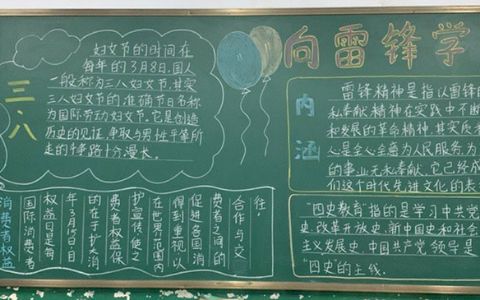 三八
妇女节的时间在
每年的3月8日.国人
一般称为三八妇女节.其实
三八妇女节的准确节日名称
为国际劳动妇女节,它是创造
历史的见证,争取与男性平等所
走的斗争路十分漫长。
向雷锋学
内涵
雷锋精神是指以雷锋的
私奉献精神在实践中不断
和发展的革命精神,其实质和
心是全心全意为人民服务,为
的事业无私奉献.它已经成
们这个时代先进文化的表
消费者权益
国际消费者
权益日是每
年3月15日目
的在于扩大消
费者权益保
护宣传使之
在世界范围内
得到重视以
促进各国消
费者之间的
合作与交
往.
"四史教育"指的是学习中共党
史.改革开放史.新中国史和社会
主义发展史.中国共产党领导是
"四史"的主线.